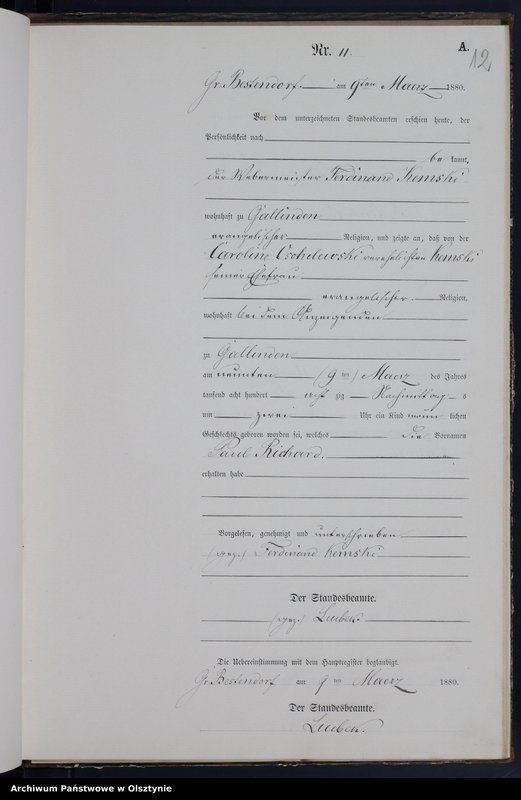 Nr. 11.
A.
12
Gr. Bestendorf. am 9ten Maerz 1880.
Vor dem unterzeichneten Standesbeamten erschien heute, der
Persönlichkeit nach
be kannt,
der Webermeister Ferdinand Komski
wohnhaft zu Gallinden
evangelischer Religion, und zeigte an, daß von der
Caroline verehelichten Komski
seiner Ehefrau
evangelischer Religion,
wohnhaft bei dem Anzeigenden
zu Gallinden
am neunten (9ten) Maerz des Jahres
tausend acht hundert acht zig Nachmittag s
um zwei Uhr ein Kind männ lichen
Geschlechts geboren worden sei, welches die Vornamen
Paul Richard.
erhalten habe
Vorgelesen, genehmigt und unterschrieben
(gez.) Ferdinand Komski
Der Standesbeamte.
(gez.) Lubek.
Die Uebereinstimmung mit dem Hauptregister beglaubigt.
Gr. Bestendorf am 9ten Maerz 1880.
Der Standesbeamte.
Lubek.
Archiwum Państwowe w Olsztynie